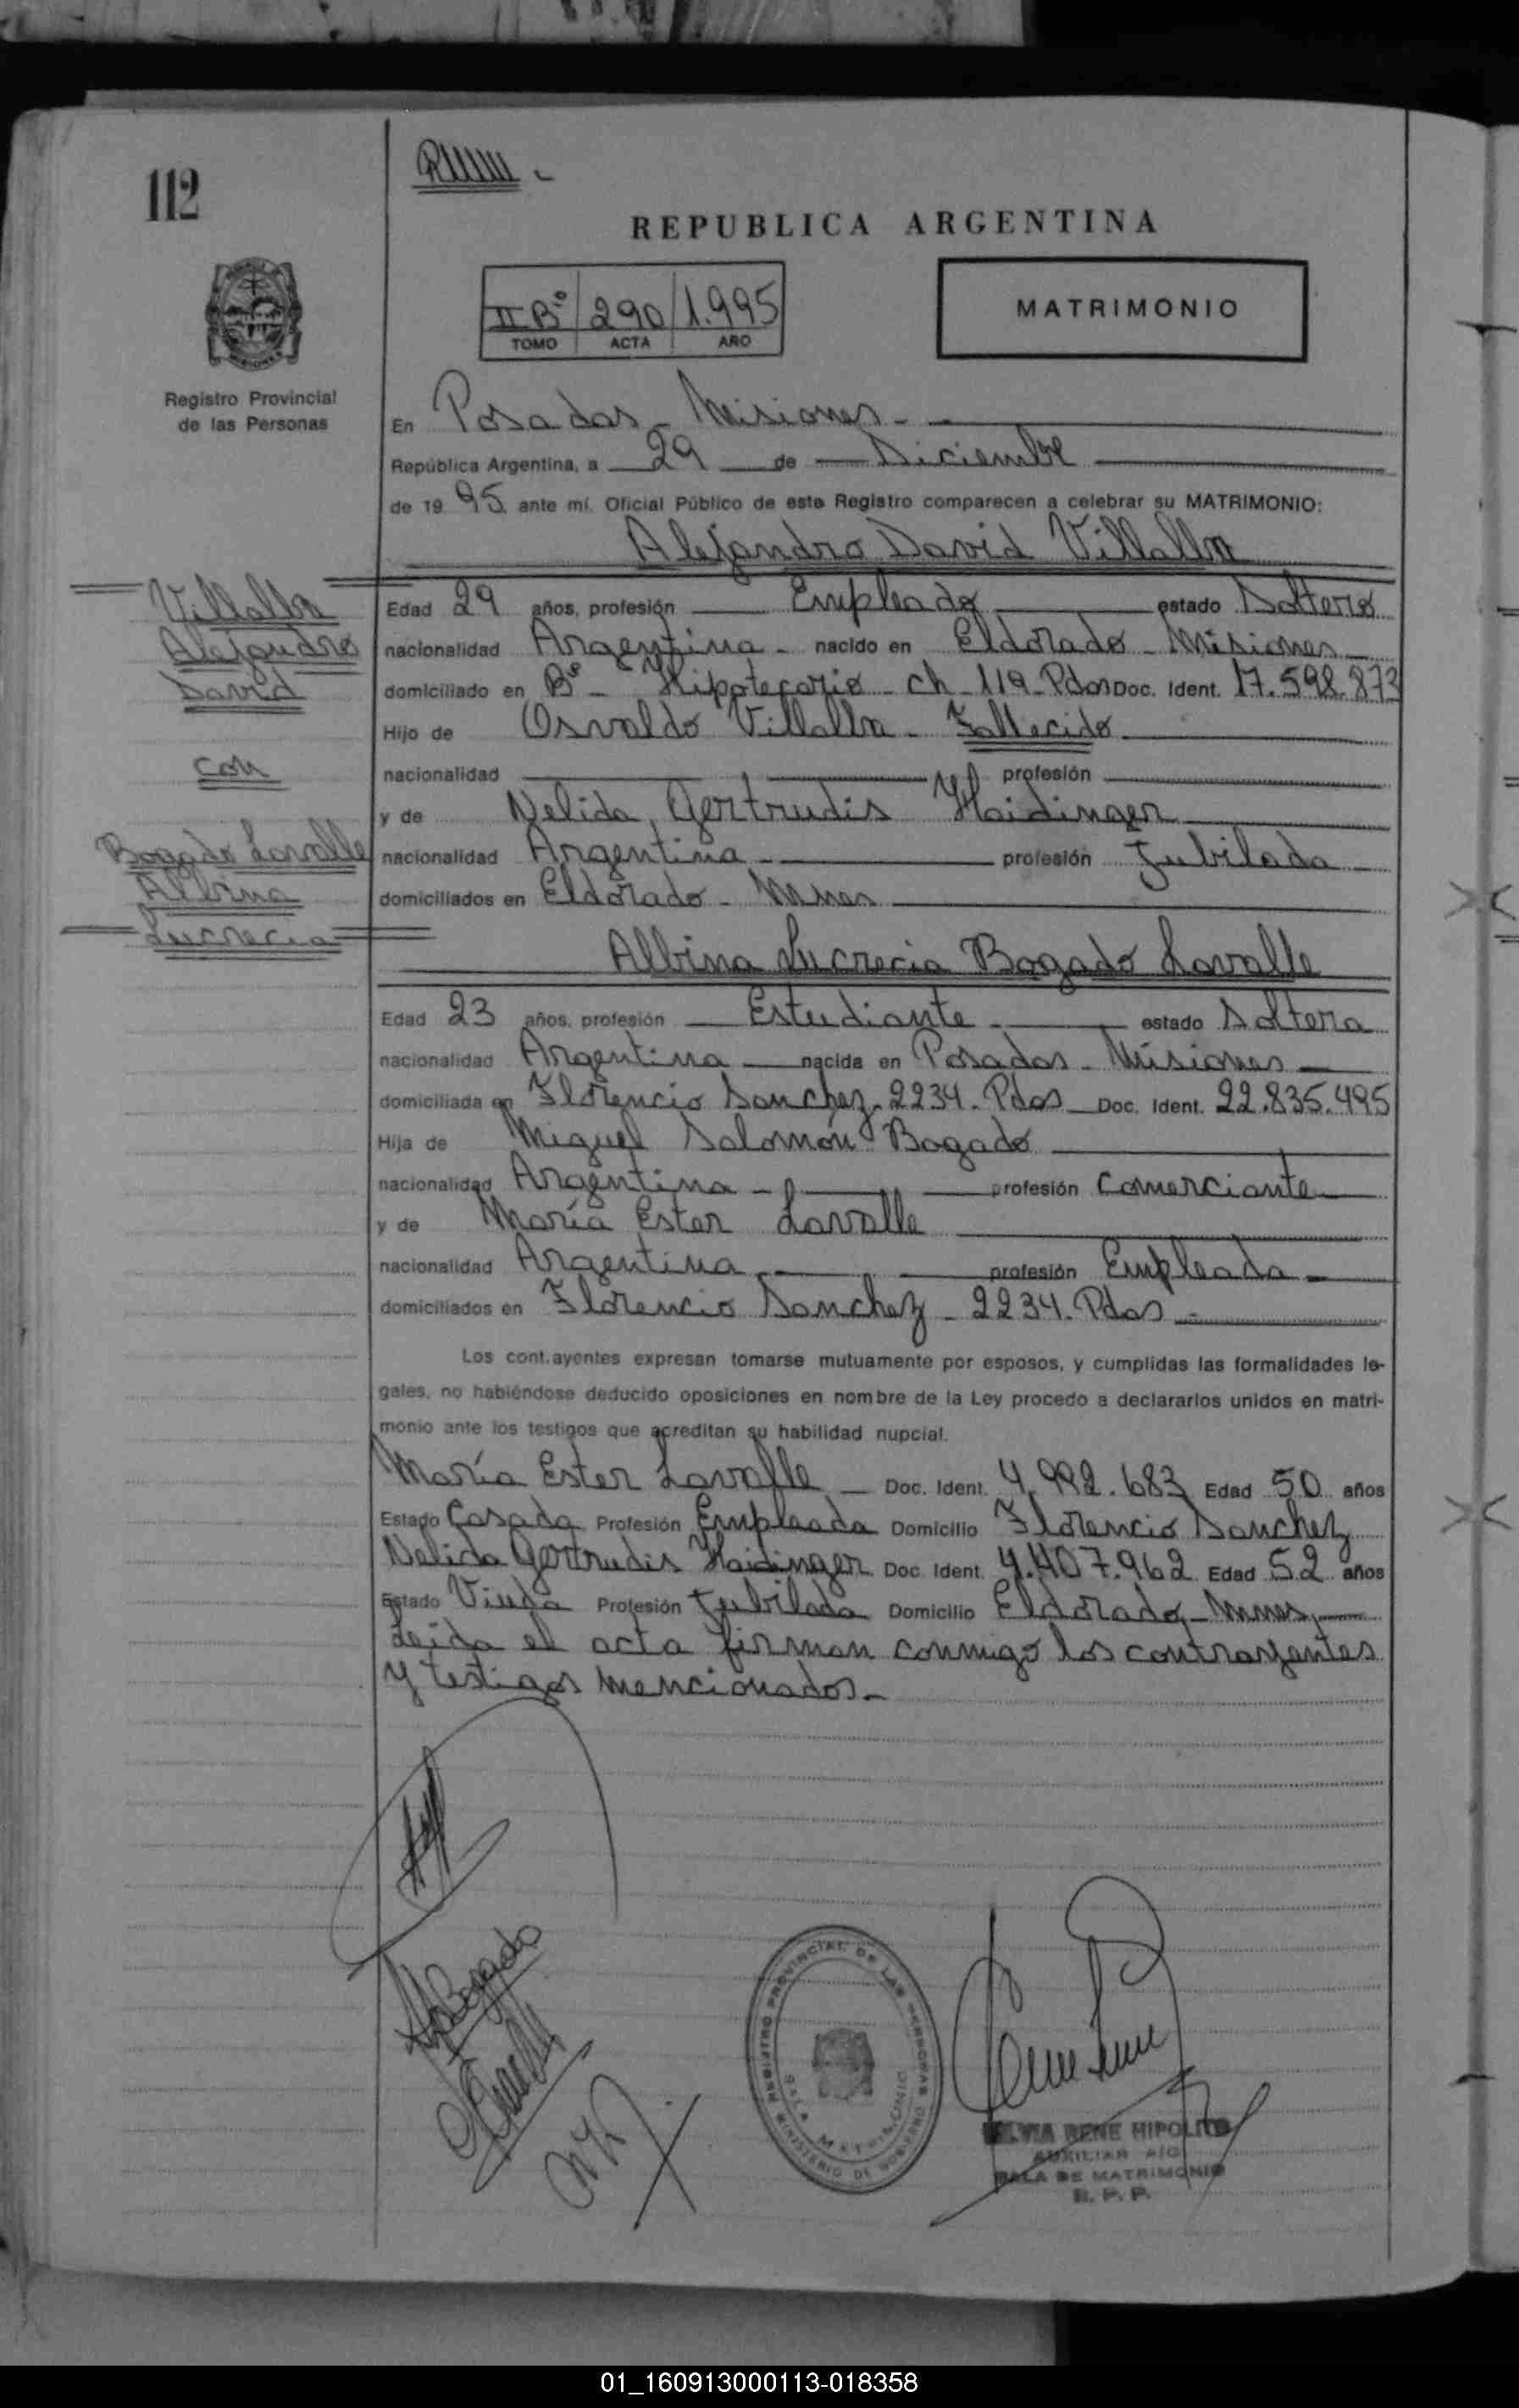 112
REPUBLICA ARGENTINA
II B° 290 1.995
TOMO ACTA AÑO
MATRIMONIO
Registro Provincial
de las Personas
En Posadas - Misiones -
República Argentina, a 29 de Diciembre
de 19 95 ante mí, Oficial Público de este Registro comparecen a celebrar su MATRIMONIO:
Alejandro David Villalba
Villalba
Alejandro
David
con
Bogado Lavalle
Albina
Lucrecia
Edad 29 años, profesión Empleado estado Soltero
nacionalidad Argentina - nacido en Eldorado - Misiones
domiciliado en B° - Hipotecario - ch - 119 - Pdas Doc. Ident. 17.598.873
Hijo de Osvaldo Villalba - Fallecido
nacionalidad profesión
y de Nelida Gertrudis Haidinger
nacionalidad Argentina - profesión Jubilada
domiciliados en Eldorado - Mnes
Albina Lucrecia Bogado Lavalle
Edad 23 años, profesión Estudiante - estado Soltera
nacionalidad Argentina nacida en Posadas - Misiones
domiciliada en Florencio Sanchez - 2234 - Pdas Doc. Ident. 22.835.495
Hija de Miguel Salomón Bogado
nacionalidad Argentina - profesión Comerciante
y de María Ester Lavalle
nacionalidad Argentina profesión Empleada -
domiciliados en Florencio Sanchez - 2234 - Pdas -
Los contrayentes expresan tomarse mutuamente por esposos, y cumplidas las formalidades le-
gales, no habiéndose deducido oposiciones en nombre de la Ley procedo a declararlos unidos en matri-
monio ante los testigos que acreditan su habilidad nupcial.
María Ester Lavalle - Doc. Ident. 4.992.683 Edad 50 años
Estado Casada Profesión Empleada Domicilio Florencio Sanchez
Nelida Gertrudis Haidinger Doc. Ident. 4.407.962 Edad 52 años
Estado Viuda Profesión Jubilada Domicilio Eldorado - Mnes
Leida el acta firman conmigo los contrayentes
y testigos mencionados -
Bogado
REGISTRO PROVINCIAL DE LAS PERSONAS
SALA MATRIMONIO
MINISTERIO DE GOBIERNO
SILVIA RENE HIPOLITO
AUXILIAR A/C
SALA DE MATRIMONIO
R. P. P.
01_160913000113-018358